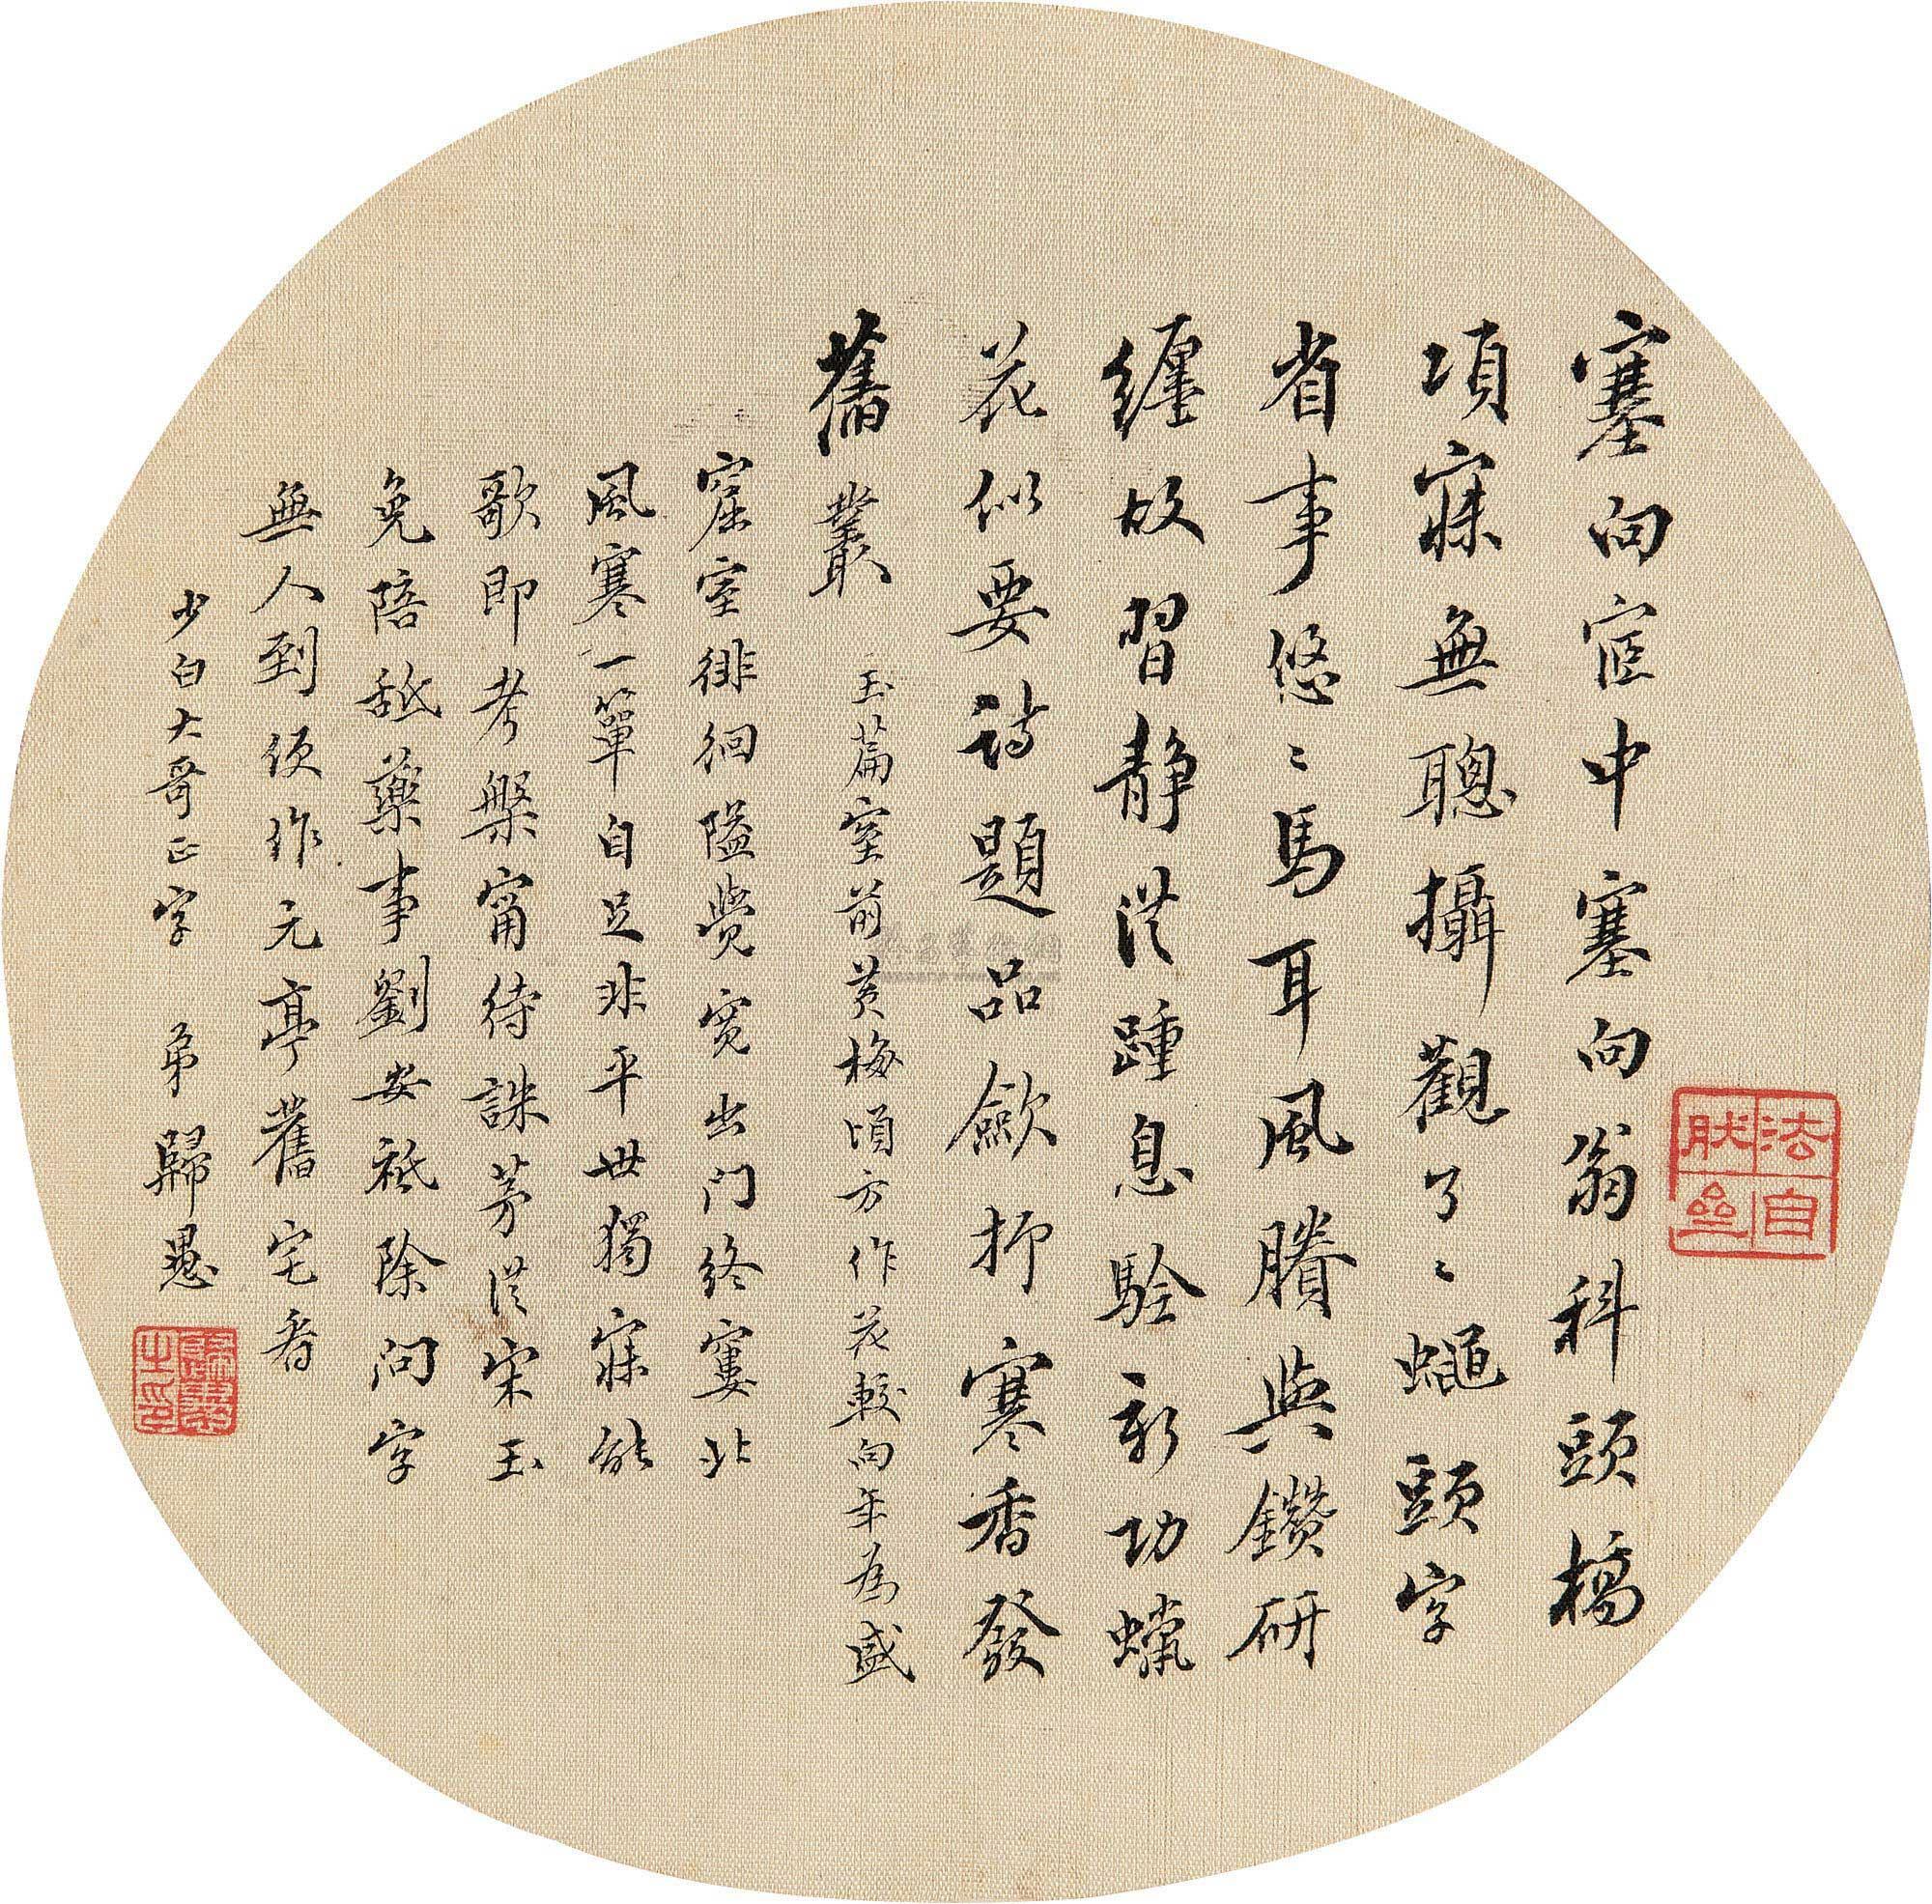 塞向宧中塞向翁科頭槁
項寐無聰攝觀了〻蠅頭字
省事悠〻馬耳風賸與鑽研
纏故習静從踵息驗新功蠟
花似要詩題品斂抑寒香發
舊叢 玉篇室前黄梅頃方作花較向年為盛
窟室徘徊隘覺寬出门終窶北
風寒一簞自足非平世獨寐能
歌即考槃甯待誅茅從宋玉
免陪舐藥事劉安祗除问字
無人到便作元亭舊宅看
少白大哥正字 弟歸愚
法自
然
歸愚
之印